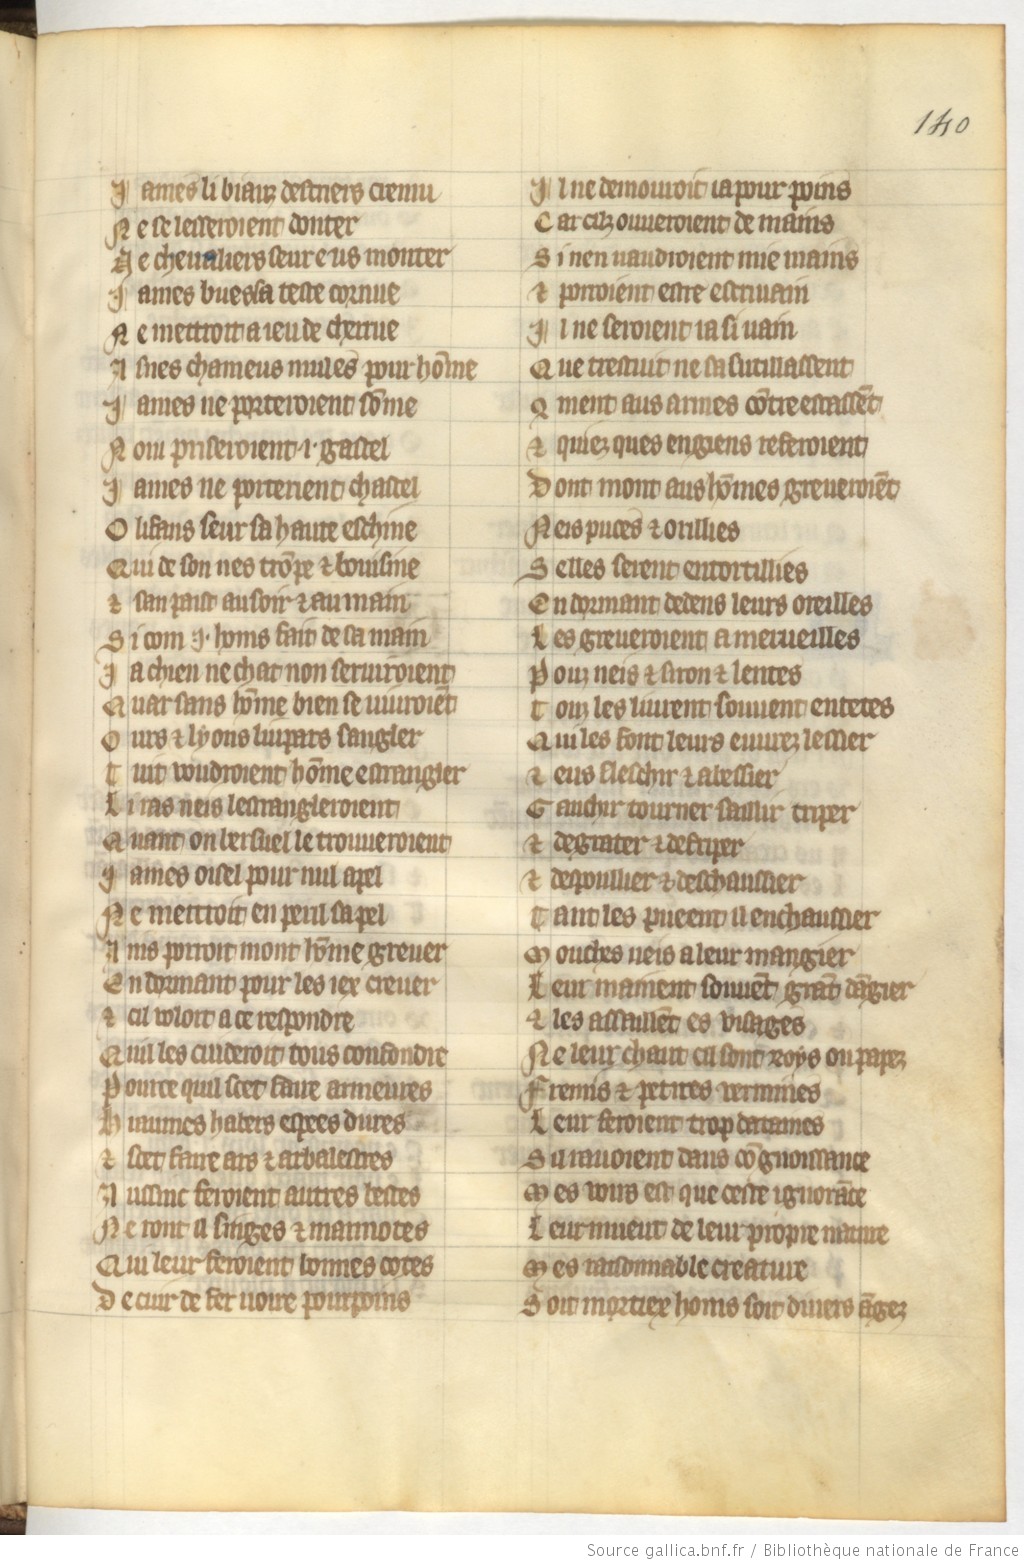 140
J ames li biauz destriers crenu
N e se lesseroient donter
N e chevaliers seur eus monter
J ames bues sa teste cornue
N e mettroit a ieu de cherrue
A snes chameus mules pour hõme
J ames ne porteroient sõme
N on priseroient .i. gastel
J ames ne porterient chastel
O lifans seur sa haute eschine
Q ui de son nes trõpe ⁊ bouisine
⁊ san paist au soir ⁊ au main
S i com .j. homs fait de sa main
J a chien ne chat non serviroient
Q uar sans hõme bien se viuroiẽt
O urs ⁊ lyons liupars sangler
T uit voudroient hõme estrangler
L i ras neis lestrangleroient
Q uant on bersuel le trouveroient
J ames oisel pour nul apel
N e mettroit en peril sa pel
A ins porroit mont hõme grever
E n dormant pour les iex crever
⁊ cil voloit a ce respondre
Q uil les cuideroit tous confondre
P our ce quil scet faire armeures
H iaumes haberz espees dures
⁊ scet faire ars ⁊ arbalestres
A ussint feroient autres bestes
N e ront il singes ⁊ marmotes
Q ui leur feroient bonnes cotes
D e cuir de fer voire pourpoins
J l ne demouroit ia pour poins
C ar cilz ouverroient de mains
S i nen vaudroient mie mains
⁊ porroient estre escrivain
J l ne seroient ia si vain
Q ue trestuit ne sa sutillassent
Q ment aus armes cõtreestassẽt
⁊ quiez ques engiens referoient
D ont mont aus hõmes greveroiẽt
N eis puces ⁊ orillies
S elles serent entortillies
E n dormant dedens leurs oreilles
L es greveroient a merveilles
P ouz neis ⁊ siron ⁊ lentes
T ouz les liurent souvent ententes
Q ui les font leurs euvrez lessier
⁊ eus fleschir ⁊ abessier
G auchir tourner saillir triper
⁊ degrater ⁊ defriper
⁊ despoullier ⁊ deschaussier
T ant les pueent il enchaussier
M ouches neis a leur mangier
L eur mainent souvẽt grãt dãgier
⁊ les assaillẽt es visages
N e leur chaut cil sont roys ou papez
F remis ⁊ petites vermines
L eur feroient trop dataines
S il ravoient dans cõgnoissance
M es voirs est que ceste ignorãce
L eur muent de leur propre nature
M es raisonnable creature
S oit mortiex homs soit divers ãgez
Source gallica.bnf.fr / Bibliothèque nationale de France